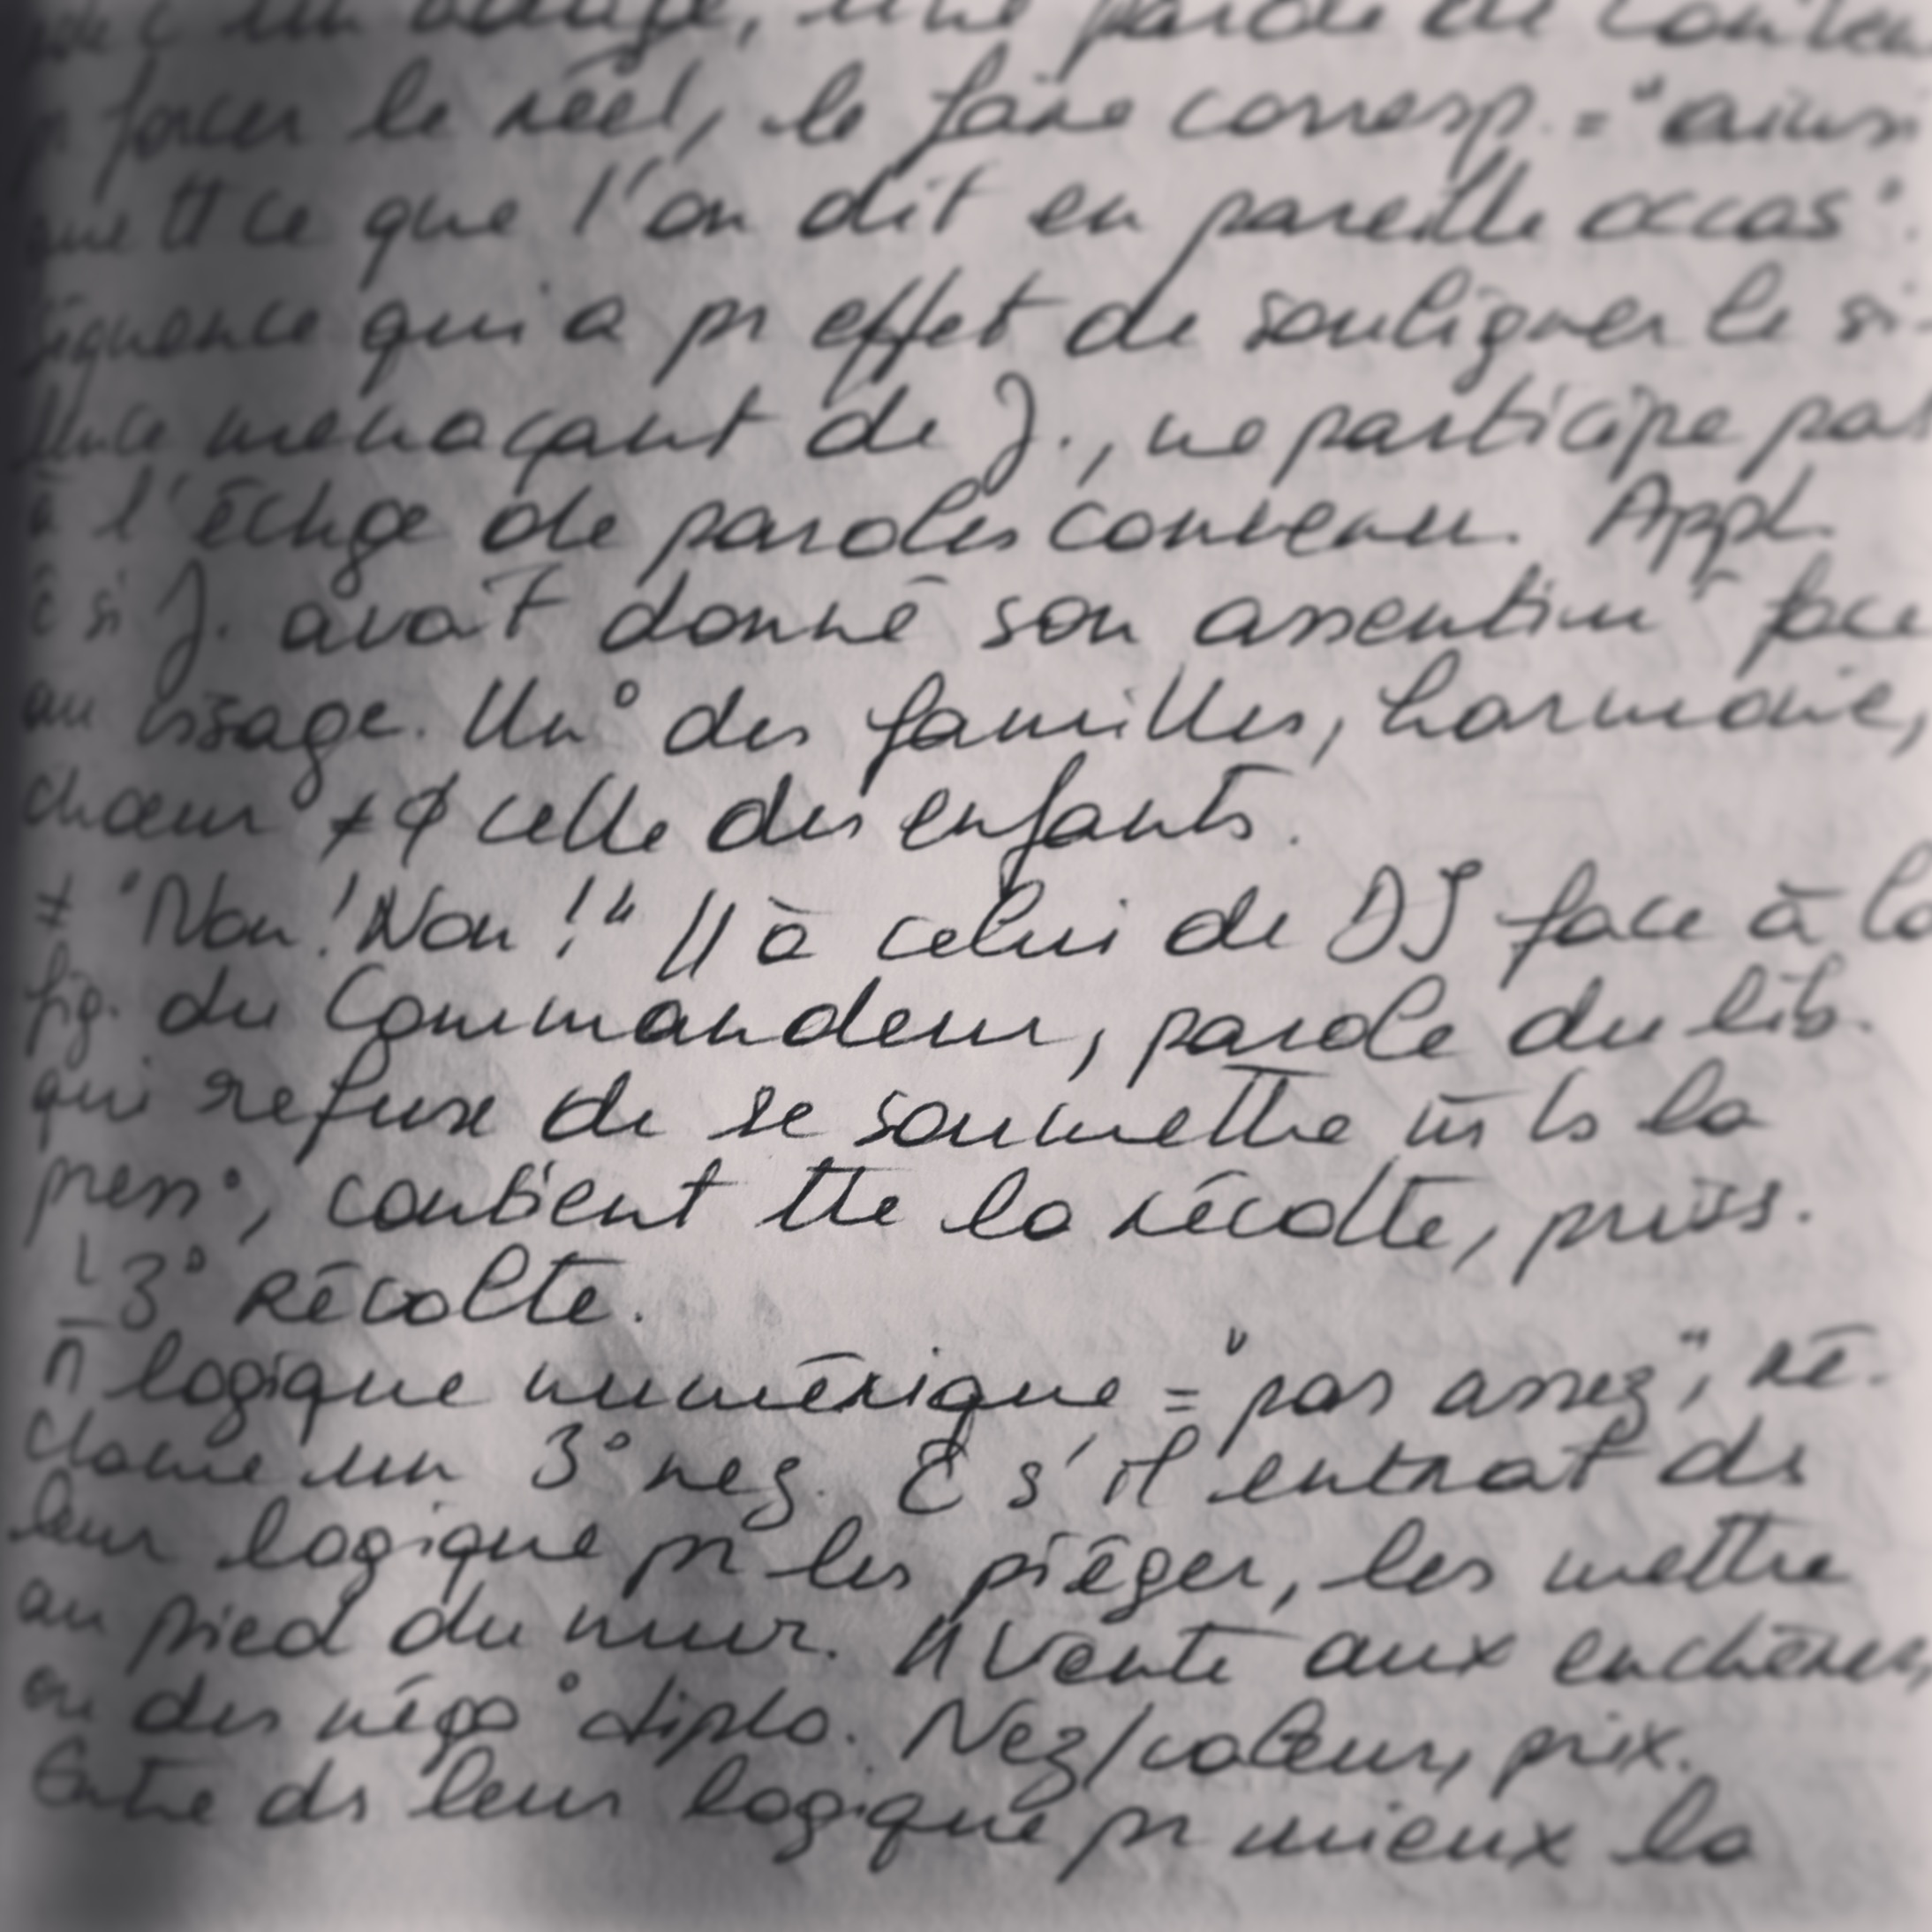 une parole de
forcer le réel, le faire corresp. = "ainsi
que tt ce que l'on dit en pareille occas°.
séquence qui a pr effet de souligner le si-
lence menaçant de J., ne participe pas
à l'échge de paroles convenu. Appt
c si J. avait donné son assentimt face
au visage. Un° des familles, harmonie,
chœur ≠ celle des enfants.
≠ "Non! Non!" // à celui de DJ face à la
fig. du Commandeur, parole du lib.
qui refuse de se soumettre ms ts la
press°, contient tte la récolte, puiss.
3° Récolte.
logique numérique = "pas assez", ré-
clame un 3° nez. C s'il entrait ds
leur logique pr les piéger, les mettre
au pied du mur. // Vente aux enchères,
ou des négo° diplo. Nez/valeur, prix.
Entre ds leur logique pr mieux la